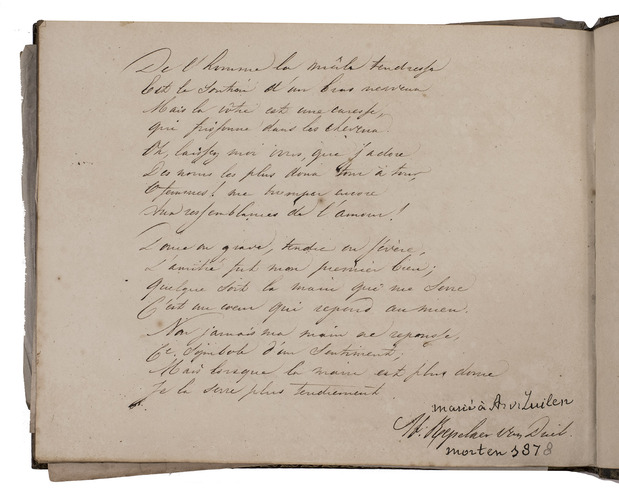 De l'homme la mâle tendresse
Est le soutien d'un bras nerveux
Mais la vôtre est une caresse,
qui frissonne dans les cheveux.
Oh, laissez moi vous, que j'adore
Des noms les plus doux tour à tour,
O femmes! me tromper encore
Aux ressemblances de l'amour!
Douce ou grave, tendre ou sévère,
L'amitié fut mon premier bien;
Quelque soit la main qui me serre
C'est un coeur qui répond au mien.
Non jamais ma main ne repousse,
Ce symbole d'un sentiment;
Mais lorsque la main est plus douce
Je la serre plus tendrement
marié à A v Zuilen
van
mort en 1878